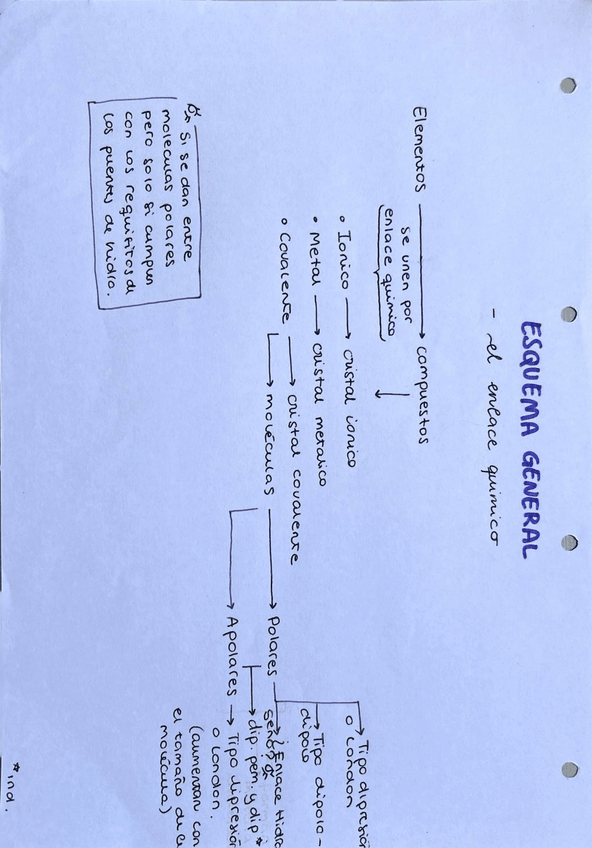 ESQUEMA GENERAL
- el enlace quimico
Elementos → compuestos
se unen por
enlace químico
• Ionico → cristal ionico
• Metal → cristal metalico
• Covalente → cristal covalente
→ moléculas
→ Polares
→ Tipo dipresión
o London
→ Tipo dipolo-
dipolo
Enlace Hidro
→ dip. perm. y dip*
→ Apolares → Tipo dipresión
o London.
(aumentan con
el tamaño de la
molécula)
Si se dan entre
moléculas polares
pero solo si cumplen
con los requisitos de
los puentes de hidro.
*ind.